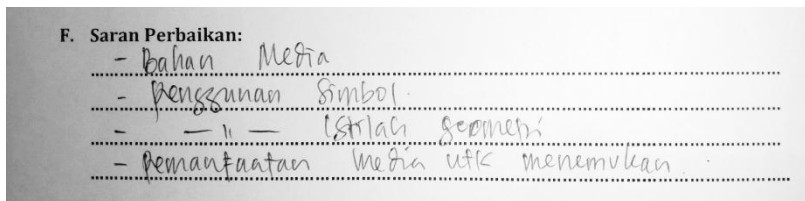 F. Saran Perbaikan:
- Bahan Media
- Penggunan Simbol.
- — 11 — Istilah geometri
- Pemanfaatan media utk menemukan.